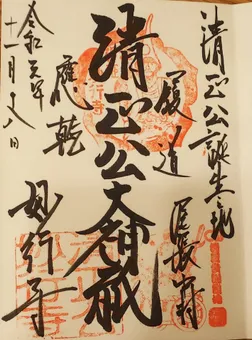 清正公誕生地
履道
應乾
清正公大神祇
尾張中村
令和元年
十一月十八日
妙行寺